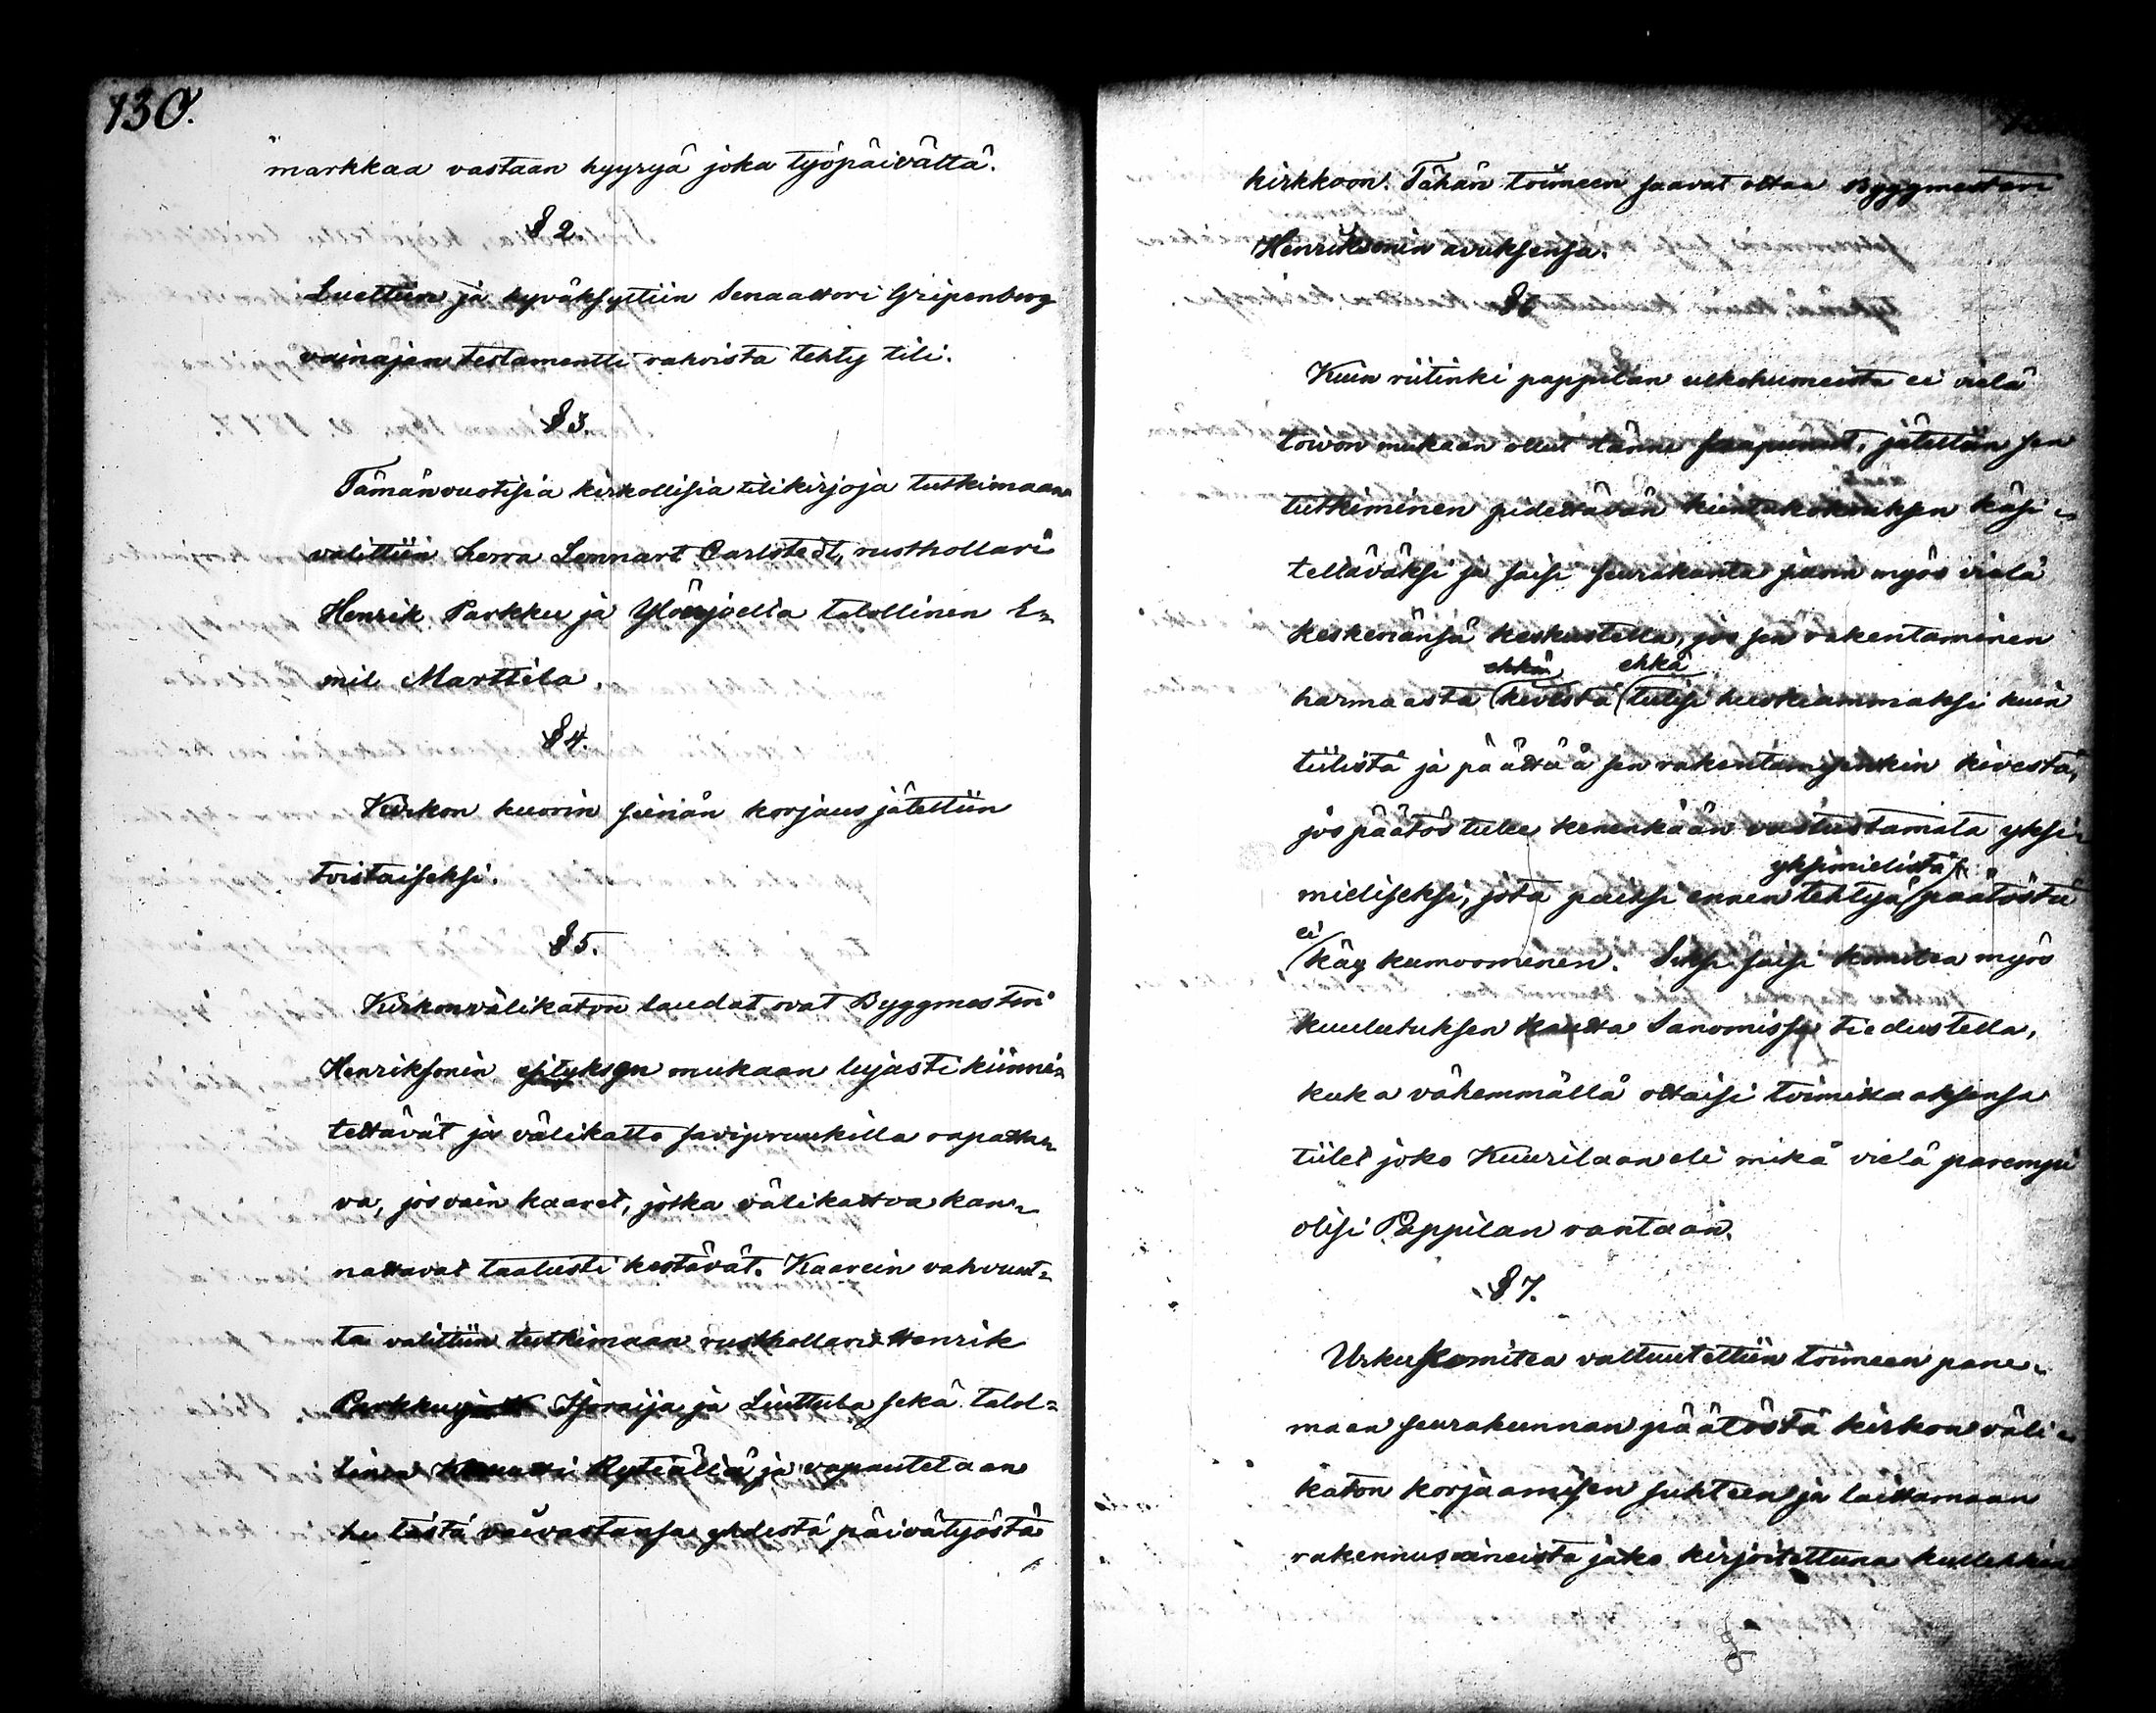 130.
markkaa vastaan hyyryä joka työpäivältä.
§ 2.
Luettiin ja hyväksyttiin Senaattori Gripenberg
vainajan testamentti rahoista tehty tili.
§ 3.
Tämänvuotisia kirkollisia tilikirjoja tutkimaan
valittiin herra Lennart Carlstedt, rusthollari
Henrik Parkku ja Ylöjjoelta talollinen E=
mil Marttila.
§ 4.
Kirkon kuorin seinän korjaus jätettiin
toistaiseksi.
§ 5.
Kirkonvälikaton laudat ovat Byggmestari
Henriksonin esityksen mukaan lujasti kiinni=
tettävät ja välikatto saviprunkilla rapatta=
va, jos vain kaaret, jotka välikattoa kan=
nattavat taatusti kestävät. Kaarein vahvuut=
ta valittiin tutkimaan rusthollarit Henrik
Parkku Isoraija ja Liuttula sekä talol=
linen Rytiälä ja vapautetaan
he tästä vaivastansa yhdestä päivätyöstä
kirkkoon. Tähän toimeen saavat ottaa Byggmestari
Henriksonin avuksensa.
§ 6
Kuin riitinki pappilan ulkohuoneista ei vielä
toivon mukaan ollut tänne saapunut, jätettiin sen
tutkiminen pidettävän kuntakokouksen käsi=
teltäväksi ja saisi seurakunta siinä myös vielä
keskenänsä keskustella, jos sen rakentaminen
ehkä ehkä
harmaasta kivestä tulisi huokiammaksi kuin
tiilistä ja päättää sen rakentamisenkin kivestä,
jos päätös tulee kenenkään vastustamata yksi=
yksimielistä
mieliseksi, jota paitsi ennen tehtyä päätöstä
ei
käy kumoominen. Siksi saisi komitea myös
kuulutuksen kautta Sanomissa tiedustella,
kuka vähemmällä ottaisi toimittaaksensa
tiilet joko Kuurilaan eli mikä vielä parempi
olisi Pappilan rantaan.
§ 7.
Urkukomitea valtuutettiin toimeen pane=
maan seurakunnan päätöstä kirkon väli=
katon korjaamisen suhteen ja laittamaan
rakennusaineista jako kirjoitettuna kullekkin